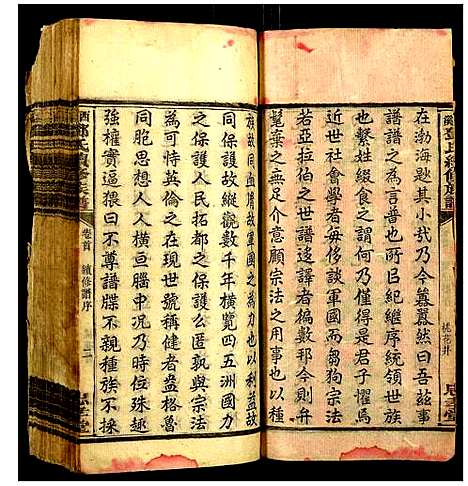 在渤海尟其小哉乃今囂囂然曰吾茲事
譜譜之為言普也所以紀繼序統領世族
也繫姓綴食之謂何乃僅得是君子懼焉
近世社會學者每侈談軍國而芻狗宗法
若亞拉伯之世譜迻譯者編數邦今則弁
髦棄之無足介意顧宗法之用事也以種
族故同血胤故軍國之為力也以利益故
同保護故縱觀數千年橫覽四五洲國力
之保護人民拓都之保護公匿孰與宗法
為可恃英倫之在現世號稱健者盎格魯
同胞思想人人橫亘腦中况乃時會殊趣
強權實逼猥曰不尊譜牒不親種族不採
氏續修族譜
桃花井
西鄧氏續修族譜
卷首
續修譜序